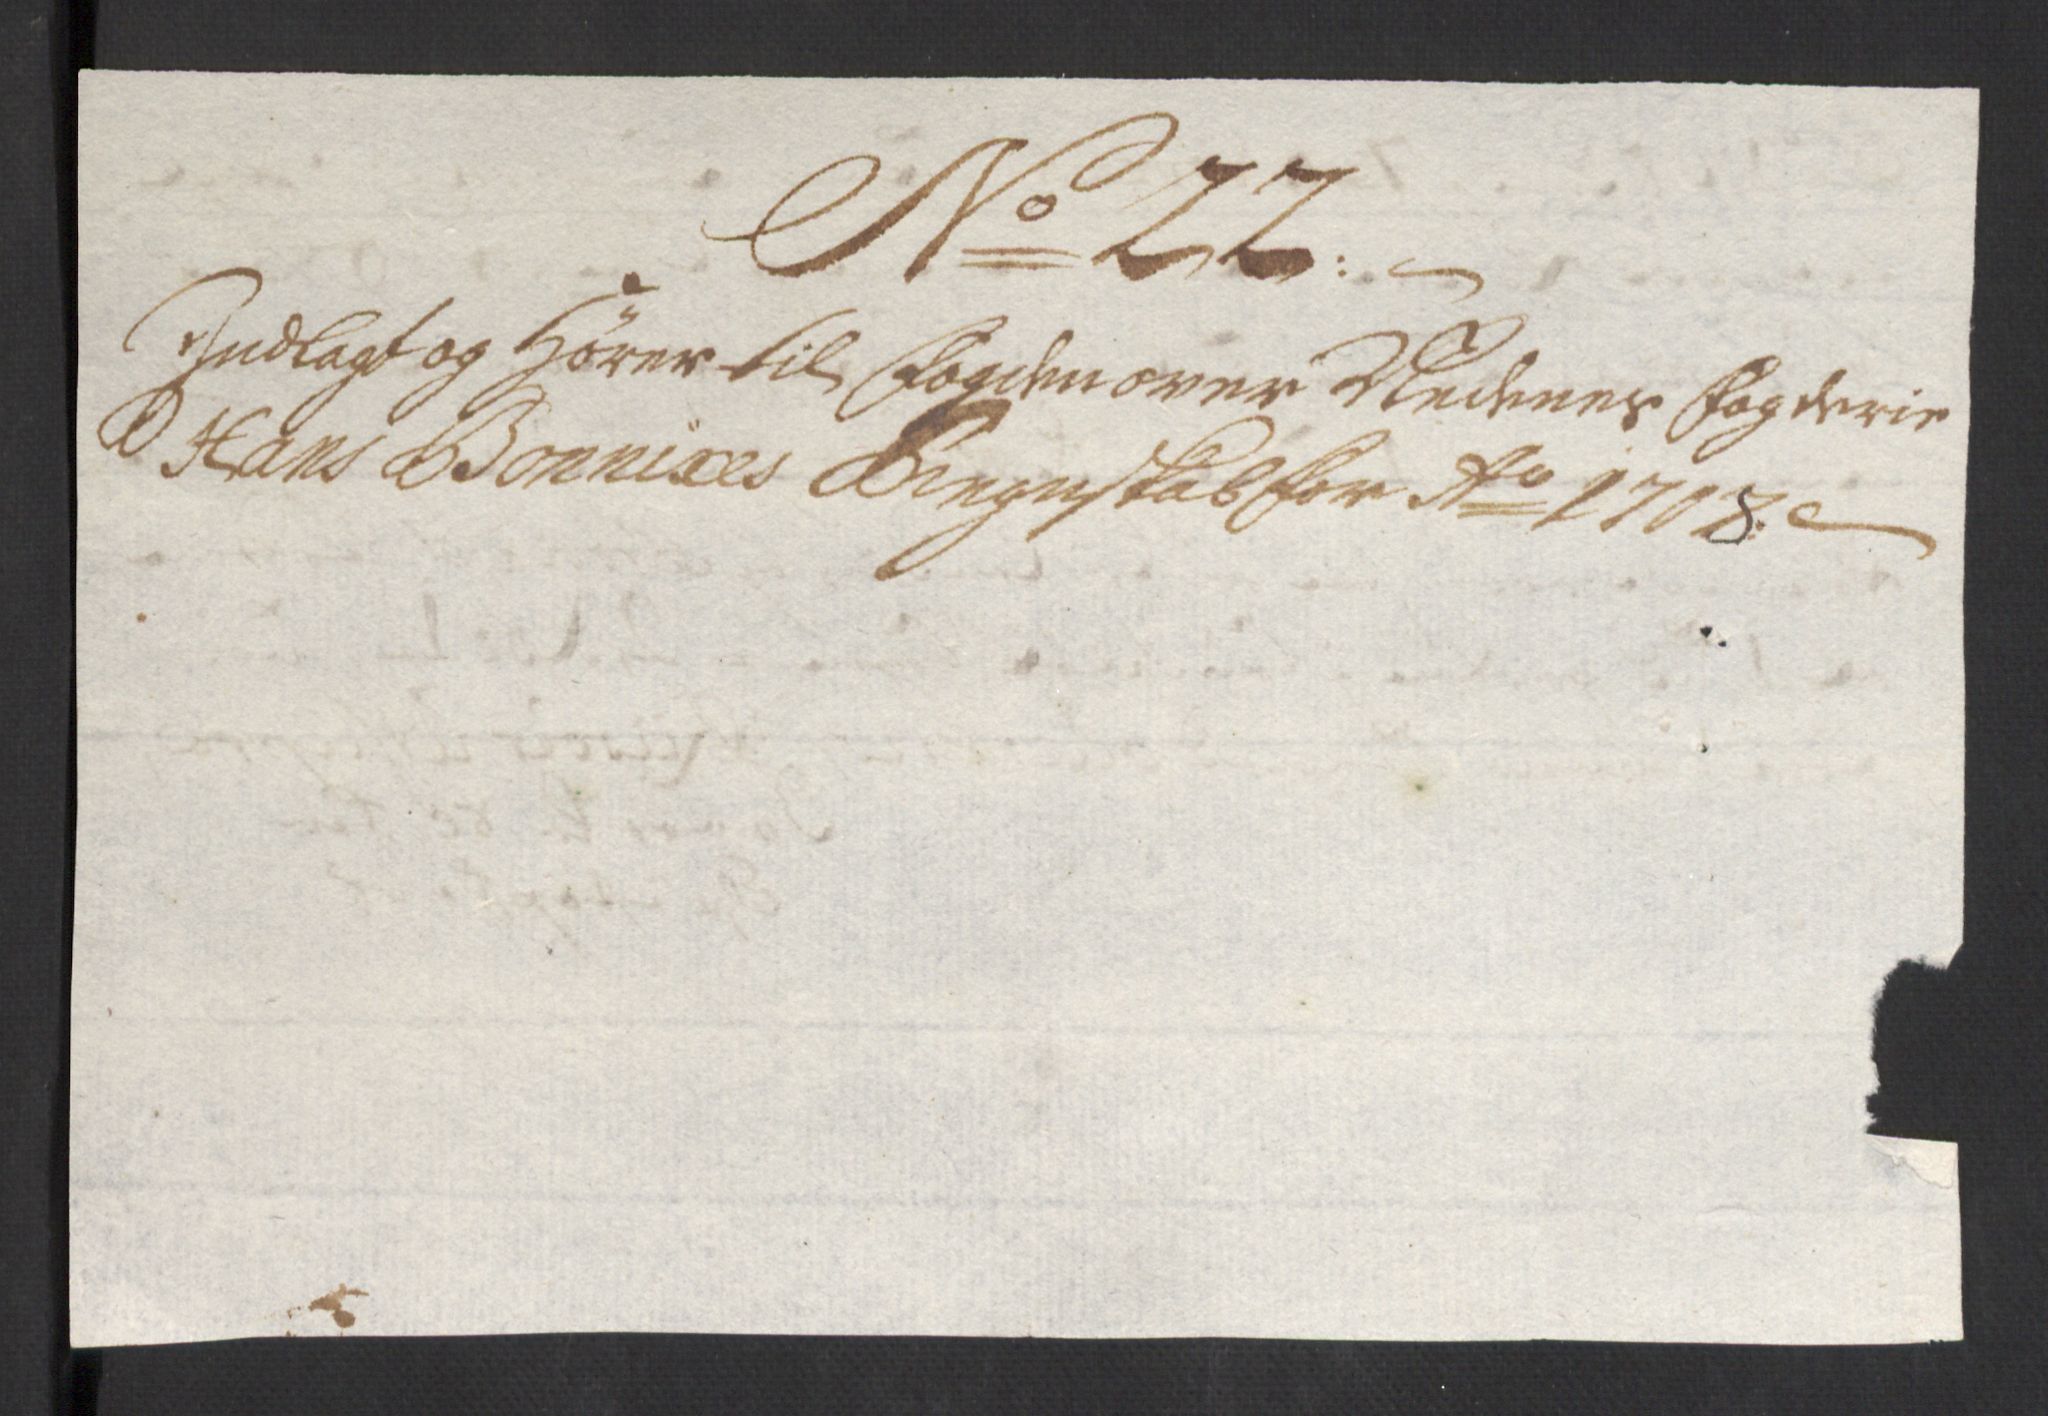 No 22:
Indlagt og Hører til Fogden over Nedenes Fogderie
Hans Bonnixes Regnskab for Ao 1708: